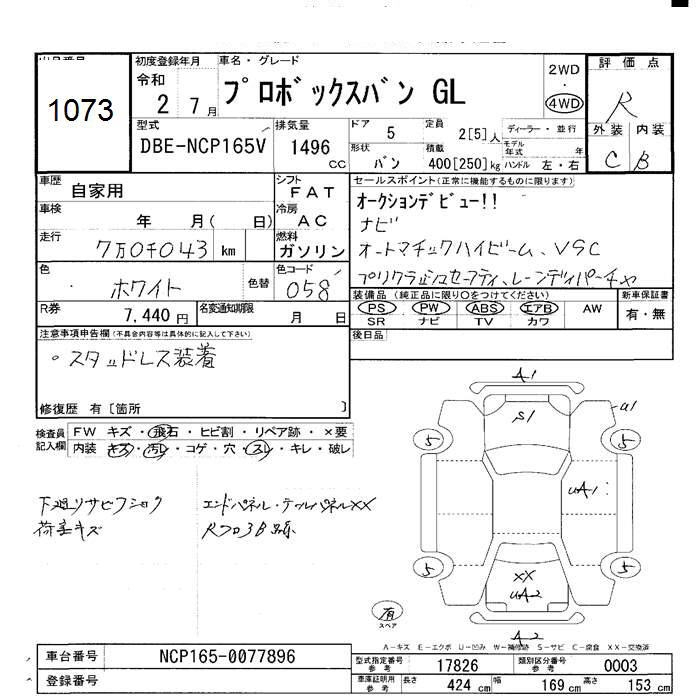 出品番号
1073
初度登録年月
令和
2 7月
車名・グレード
プロボックスバン GL
2WD
・
4WD
評価点
R
外装 内装
C B
型式
DBE-NCP165V
排気量
1496
CC
ドア
5
定員
2[5]人
形状
バン
積載
400[250]kg
ディーラー・並行
モデル年式 年
ハンドル 左・右
車歴
自家用
車検
年 月( 日)
走行
7万0千043 km
色
ホワイト
色替
シフト
FAT
冷房
AC
燃料
ガソリン
色コード
058
R券
7,440円
名変通知期限
月 日
セールスポイント(正常に機能するものに限ります)
オークションデビュー!!
ナビ
オートマチックハイビーム、VSC
プリクラッシュセーフティ、レーンディパーチャ
装備品(純正品に限り○をつけてください)
PS PW ABS エアB AW
SR ナビ TV カワ
新車保証書
有・無
後日品
注意事項申告欄(不具合内容等は具体的に記入して下さい)
・スタッドレス装着
修復歴 有〔箇所 〕
検査員記入欄
FW キズ・飛石・ヒビ割・リペア跡・×要
内装 キズ・汚レ・コゲ・穴・スレ・キレ・破レ
下廻リサビフショク
荷室キズ
エンドパネル・テールパネルXX
A1
S1
U1
5
5
UA1
5
5
XX
UA2
A2
有
スペア
A-キズ E-エクボ U-凹み W-補修跡 S-サビ C-腐食 XX-交換済
車台番号
NCP165-0077896
登録番号
型式指定番号
参考
17826
類別区分番号
参考
0003
車庫証明用
参考
長さ
424 cm
幅
169 cm
高さ
153 cm